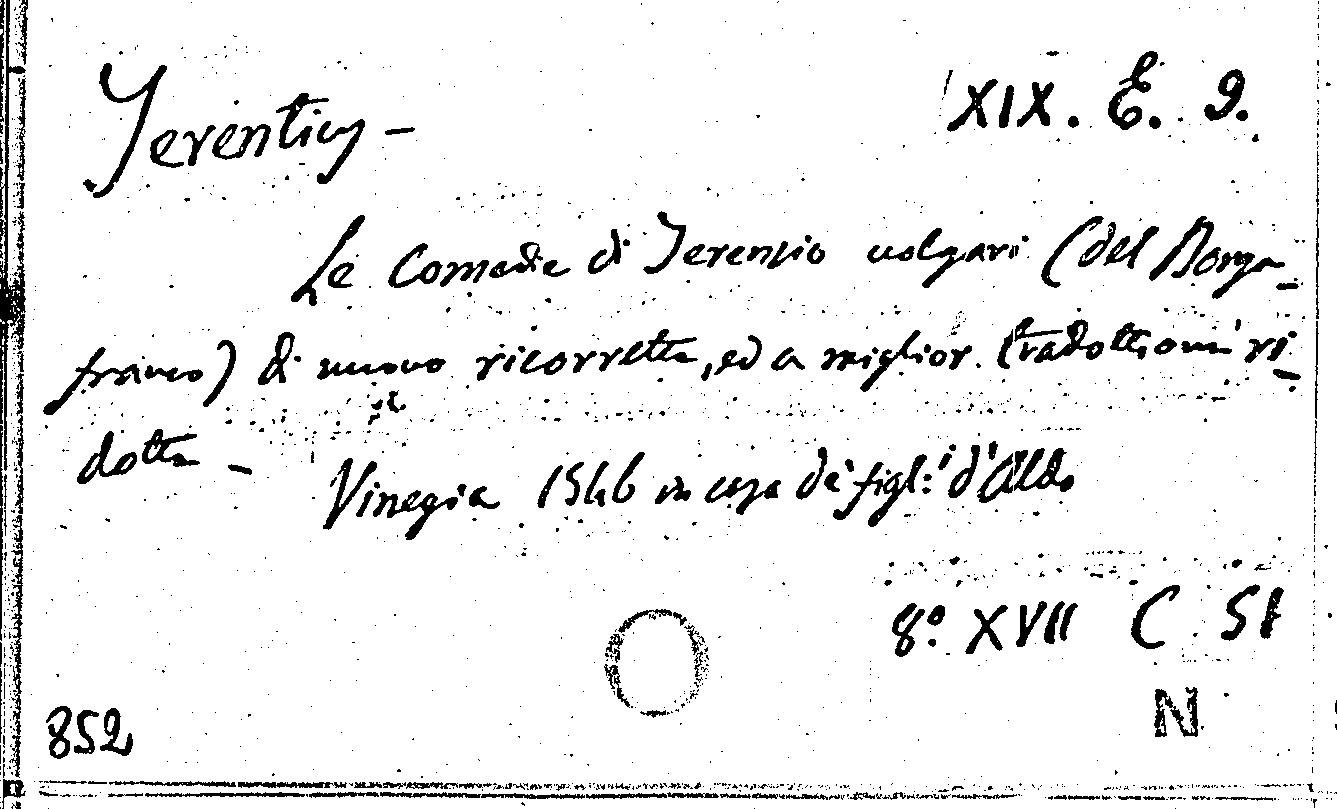 Terentius – XIX. E. 9.
Le Comedie di Terentio volgari (del Borga-
franco) di nuovo ricorrette, ed a miglior tradottione ri-
dotte –
Vinegia 1546 in casa de' figl:i d'Aldo
8º XVII C 51
N
852